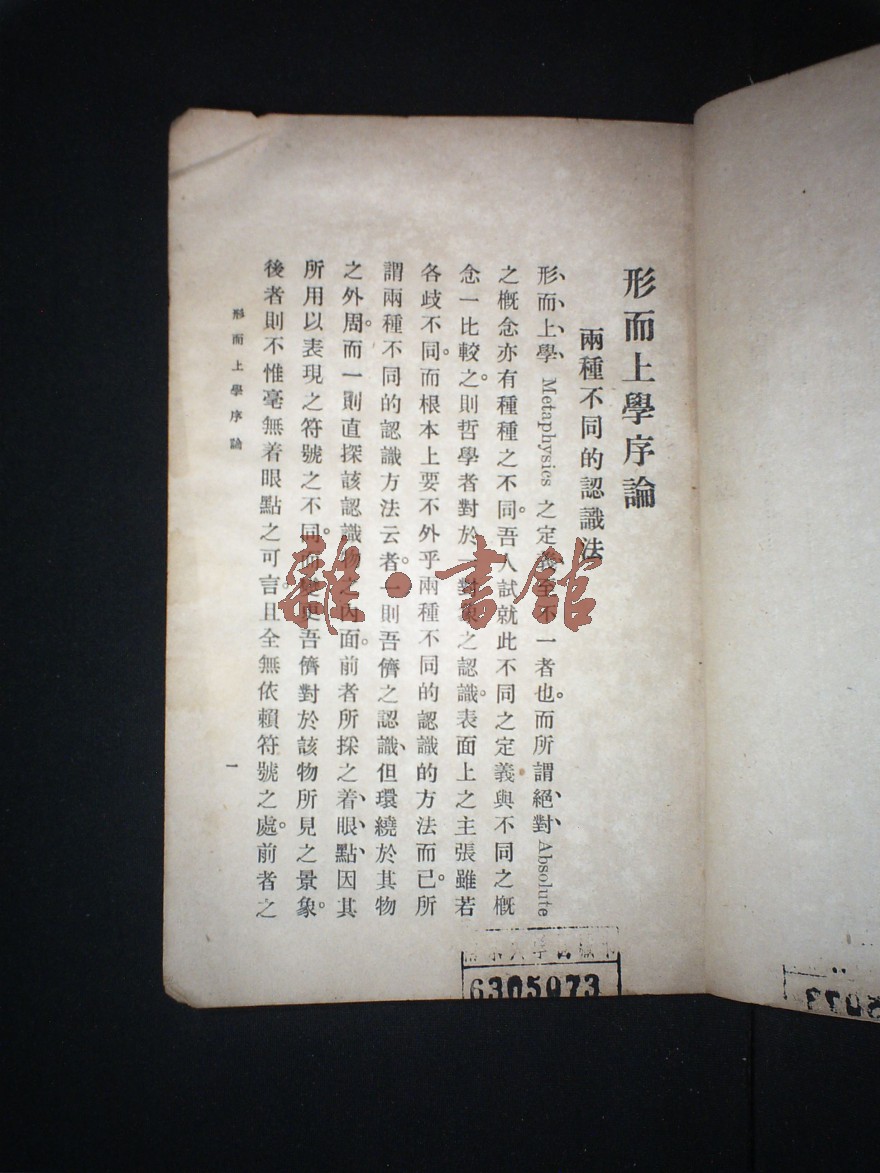 形而上學序論
兩種不同的認識法
形而上學 Metaphysics 之定義至不一者也。而所謂絕對 Absolute
之概念亦有種種之不同。吾人試就此不同之定義與不同之概
念一比較之。則哲學者對於一對象之認識。表面上之主張雖若
各歧不同。而根本上要不外乎兩種不同的認識的方法而已。所
謂兩種不同的認識方法云者。一則吾儕之認識、但環繞於其物
之外周。而一則直探該認識物之內面。前者所採之着眼點、因其
所用以表現之符號之不同。而變更吾儕對於該物所見之景象。
後者則不惟毫無着眼點之可言。且全無依賴符號之處。前者之
形而上學序論
一
雜·書館
6305073